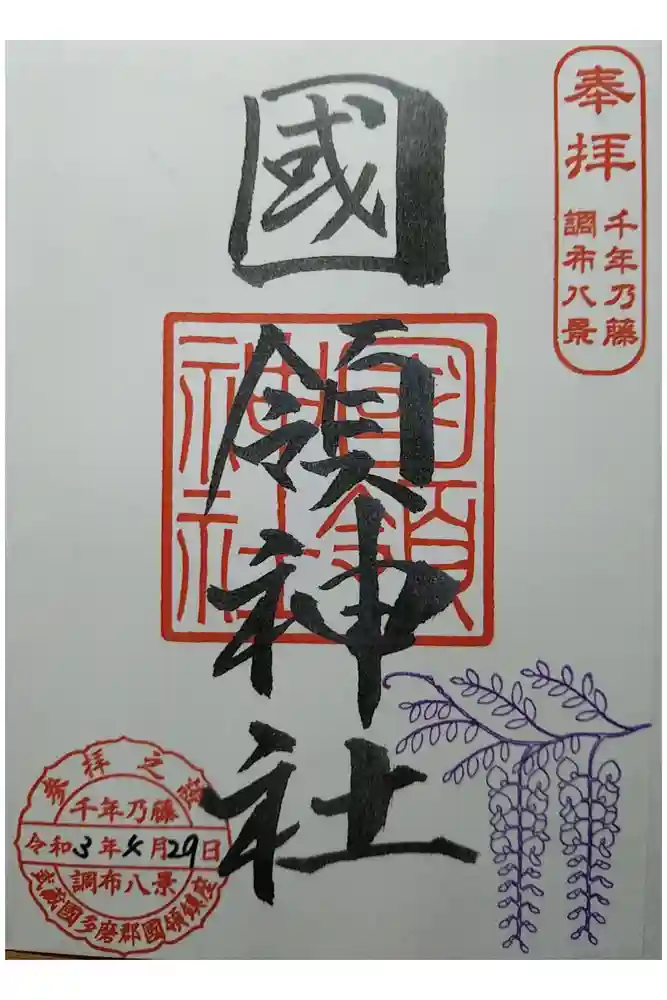 奉拝
千年乃藤
調布八景
國領神社
國領
神社
参拝之証
千年乃藤
令和3年4月29日
調布八景
武蔵國多磨郡國領鎮座